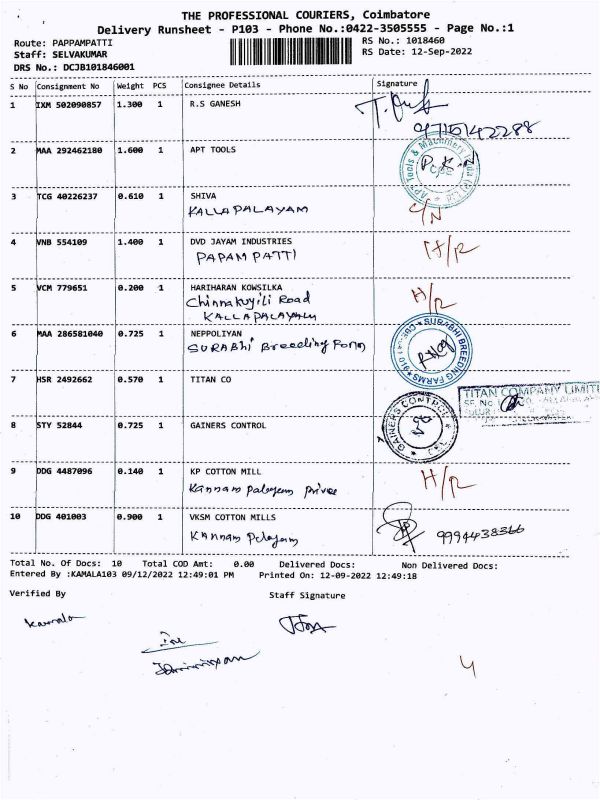 THE PROFESSIONAL COURIERS, Coimbatore
Delivery Runsheet - P103 - Phone No.:0422-3505555 - Page No.:1
Route: PAPPAMPATTI
RS No.: 1018460
Staff: SELVAKUMAR
RS Date: 12-Sep-2022
DRS No.: DCJB101846001
S No Consignment No Weight PCS Consignee Details Signature
1 IXM 502090857 1.300 1 R.S GANESH
9715142288
2 MAA 292462180 1.600 1 APT TOOLS
APT Tools & Machinery India (P) Ltd
3 TCG 40226237 0.610 1 SHIVA
KALLAPALAYAM C/N
4 VNB 554109 1.400 1 DVD JAYAM INDUSTRIES
PAPAM PATTI H/R
5 VCM 779651 0.200 1 HARIHARAN KOWSILKA
Chinnakuyili Road H/R
KALLAPALAYAM
6 MAA 286581040 0.725 1 NEPPOLIYAN
SURABhi Breeding Form
SURABHI BREEDING FARMS
7 HSR 2492662 0.570 1 TITAN CO
TITAN COMPANY LIMITE
8 STY 52844 0.725 1 GAINERS CONTROL
GAINERS CONTROL
9 DDG 4487096 0.140 1 KP COTTON MILL H/R
Kannam Palayam
10 DDG 401003 0.900 1 VKSM COTTON MILLS
Kannam Palayam 9994438366
Total No. Of Docs: 10 Total COD Amt: 0.00 Delivered Docs: Non Delivered Docs:
Entered By :KAMALA103 09/12/2022 12:49:01 PM Printed On: 12-09-2022 12:49:18
Verified By Staff Signature
Kamala
4